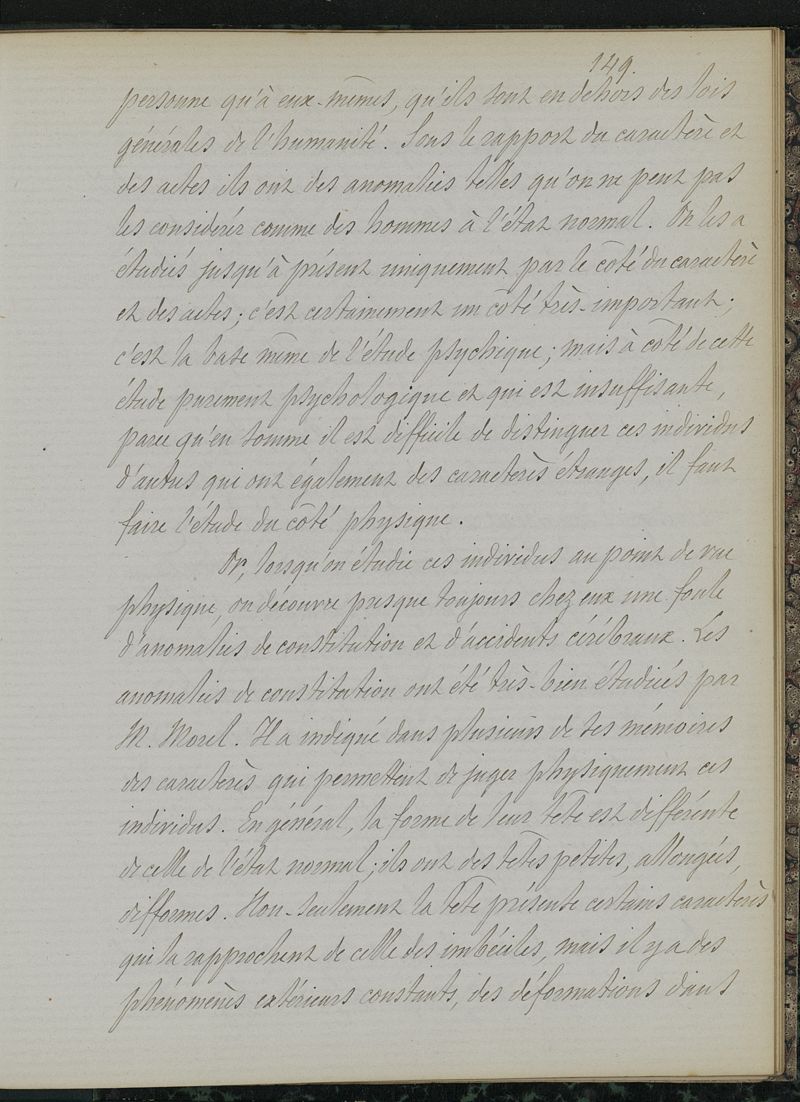 149.
personne qu'à eux-mêmes, qu'ils sont en dehors des lois
générales de l'humanité. Sous le rapport du caractère et
des actes ils ont des anomalies telles qu'on ne peut pas
les considérer comme des hommes à l'état normal. On les a
étudiés jusqu'à présent uniquement par le côté du caractère
et des actes; c'est certainement un côté très-important;
c'est la base même de l'étude psychique; mais à côté de cette
étude purement psychologique et qui est insuffisante,
parce qu'en somme il est difficile de distinguer ces individus
d'autres qui ont également des caractères étranges, il faut
faire l'étude du côté physique.
Or, lorsqu'on étudie ces individus au point de vue
physique, on découvre presque toujours chez eux une foule
d'anomalies de constitution et d'accidents cérébraux. Les
anomalies de constitution ont été très-bien étudiées par
M. Morel. Il a indiqué dans plusieurs de ses mémoires
des caractères qui permettent de juger physiquement ces
individus. En général, la forme de leur tête est différente
de celle de l'état normal; ils ont des têtes petites, allongées,
difformes. Non-seulement la tête présente certains caractères
qui la rapprochent de celle des imbéciles, mais il y a des
phénomènes extérieurs constants, des déformations dans